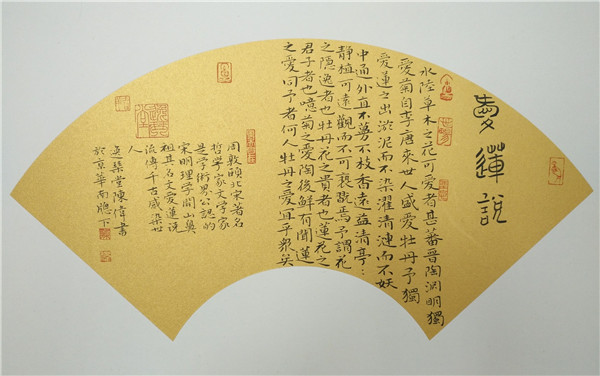 愛蓮說
水陸草木之花可愛者甚蕃晉陶淵明獨
愛菊自李唐來世人盛愛牡丹予獨
愛蓮之出淤泥而不染濯清漣而不妖
中通外直不蔓不枝香遠益清亭:
静植可遠觀而不可褻翫焉予謂花
之隱逸者也牡丹花之貴者也蓮花之
君子者也噫菊之愛陶後鮮有聞蓮
之愛同予者何人牡丹之愛宜乎衆矣
周敦頤北宋著名
哲學家文學家
是學術界公認的
宋明理學開山鼻
祖其名文愛蓮说
流傳千古感染世
人
堂陳偉書
於京華南牕下